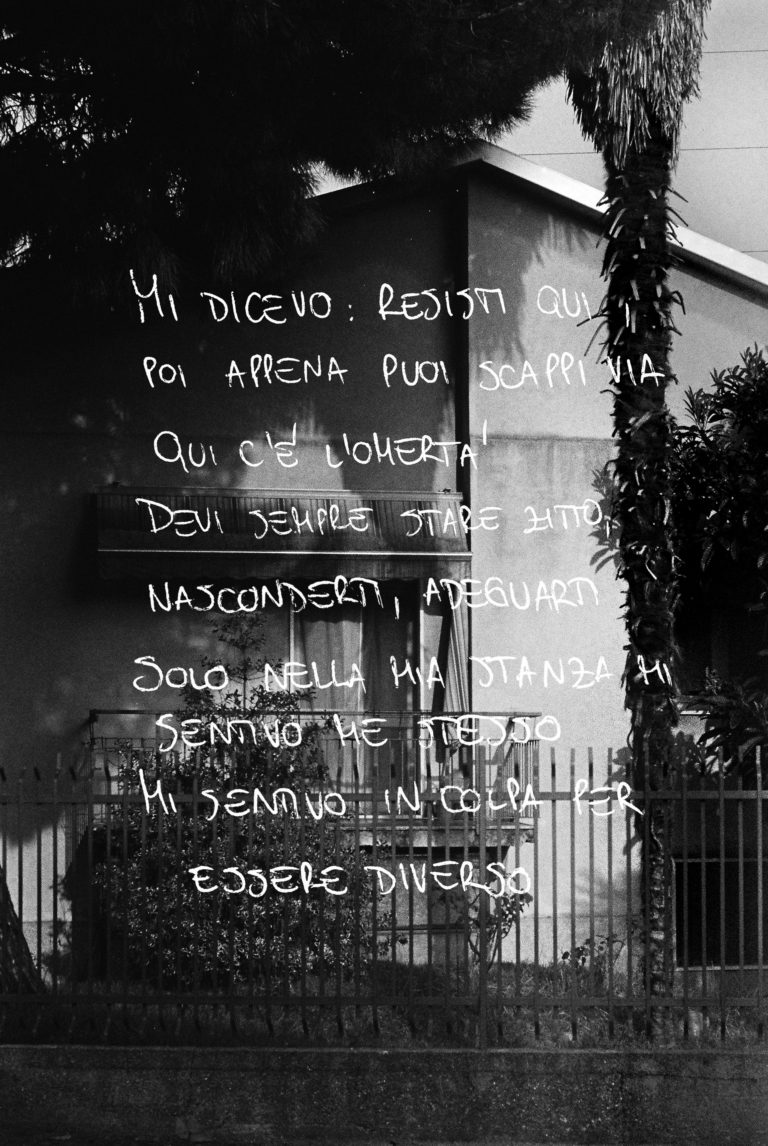 MI DICEVO: RESISTI QUI,
POI APPENA PUOI SCAPPI VIA
QUI C'È L'OMERTA'
DEVI SEMPRE STARE ZITTO,
NASCONDERTI, ADEGUARTI
SOLO NELLA MIA STANZA MI
SENTIVO ME STESSO
MI SENTIVO IN COLPA PER
ESSERE DIVERSO